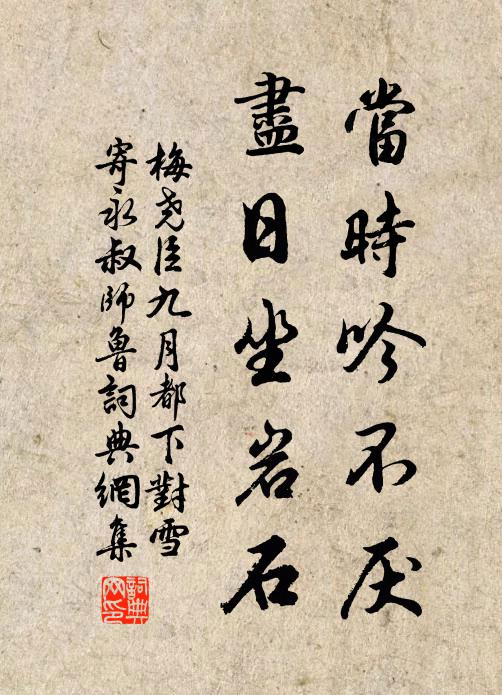 當時吟不厌
盡日坐岩石
梅尧臣九月都下對雪
寄永叔師魯詞典網集
詞典网印